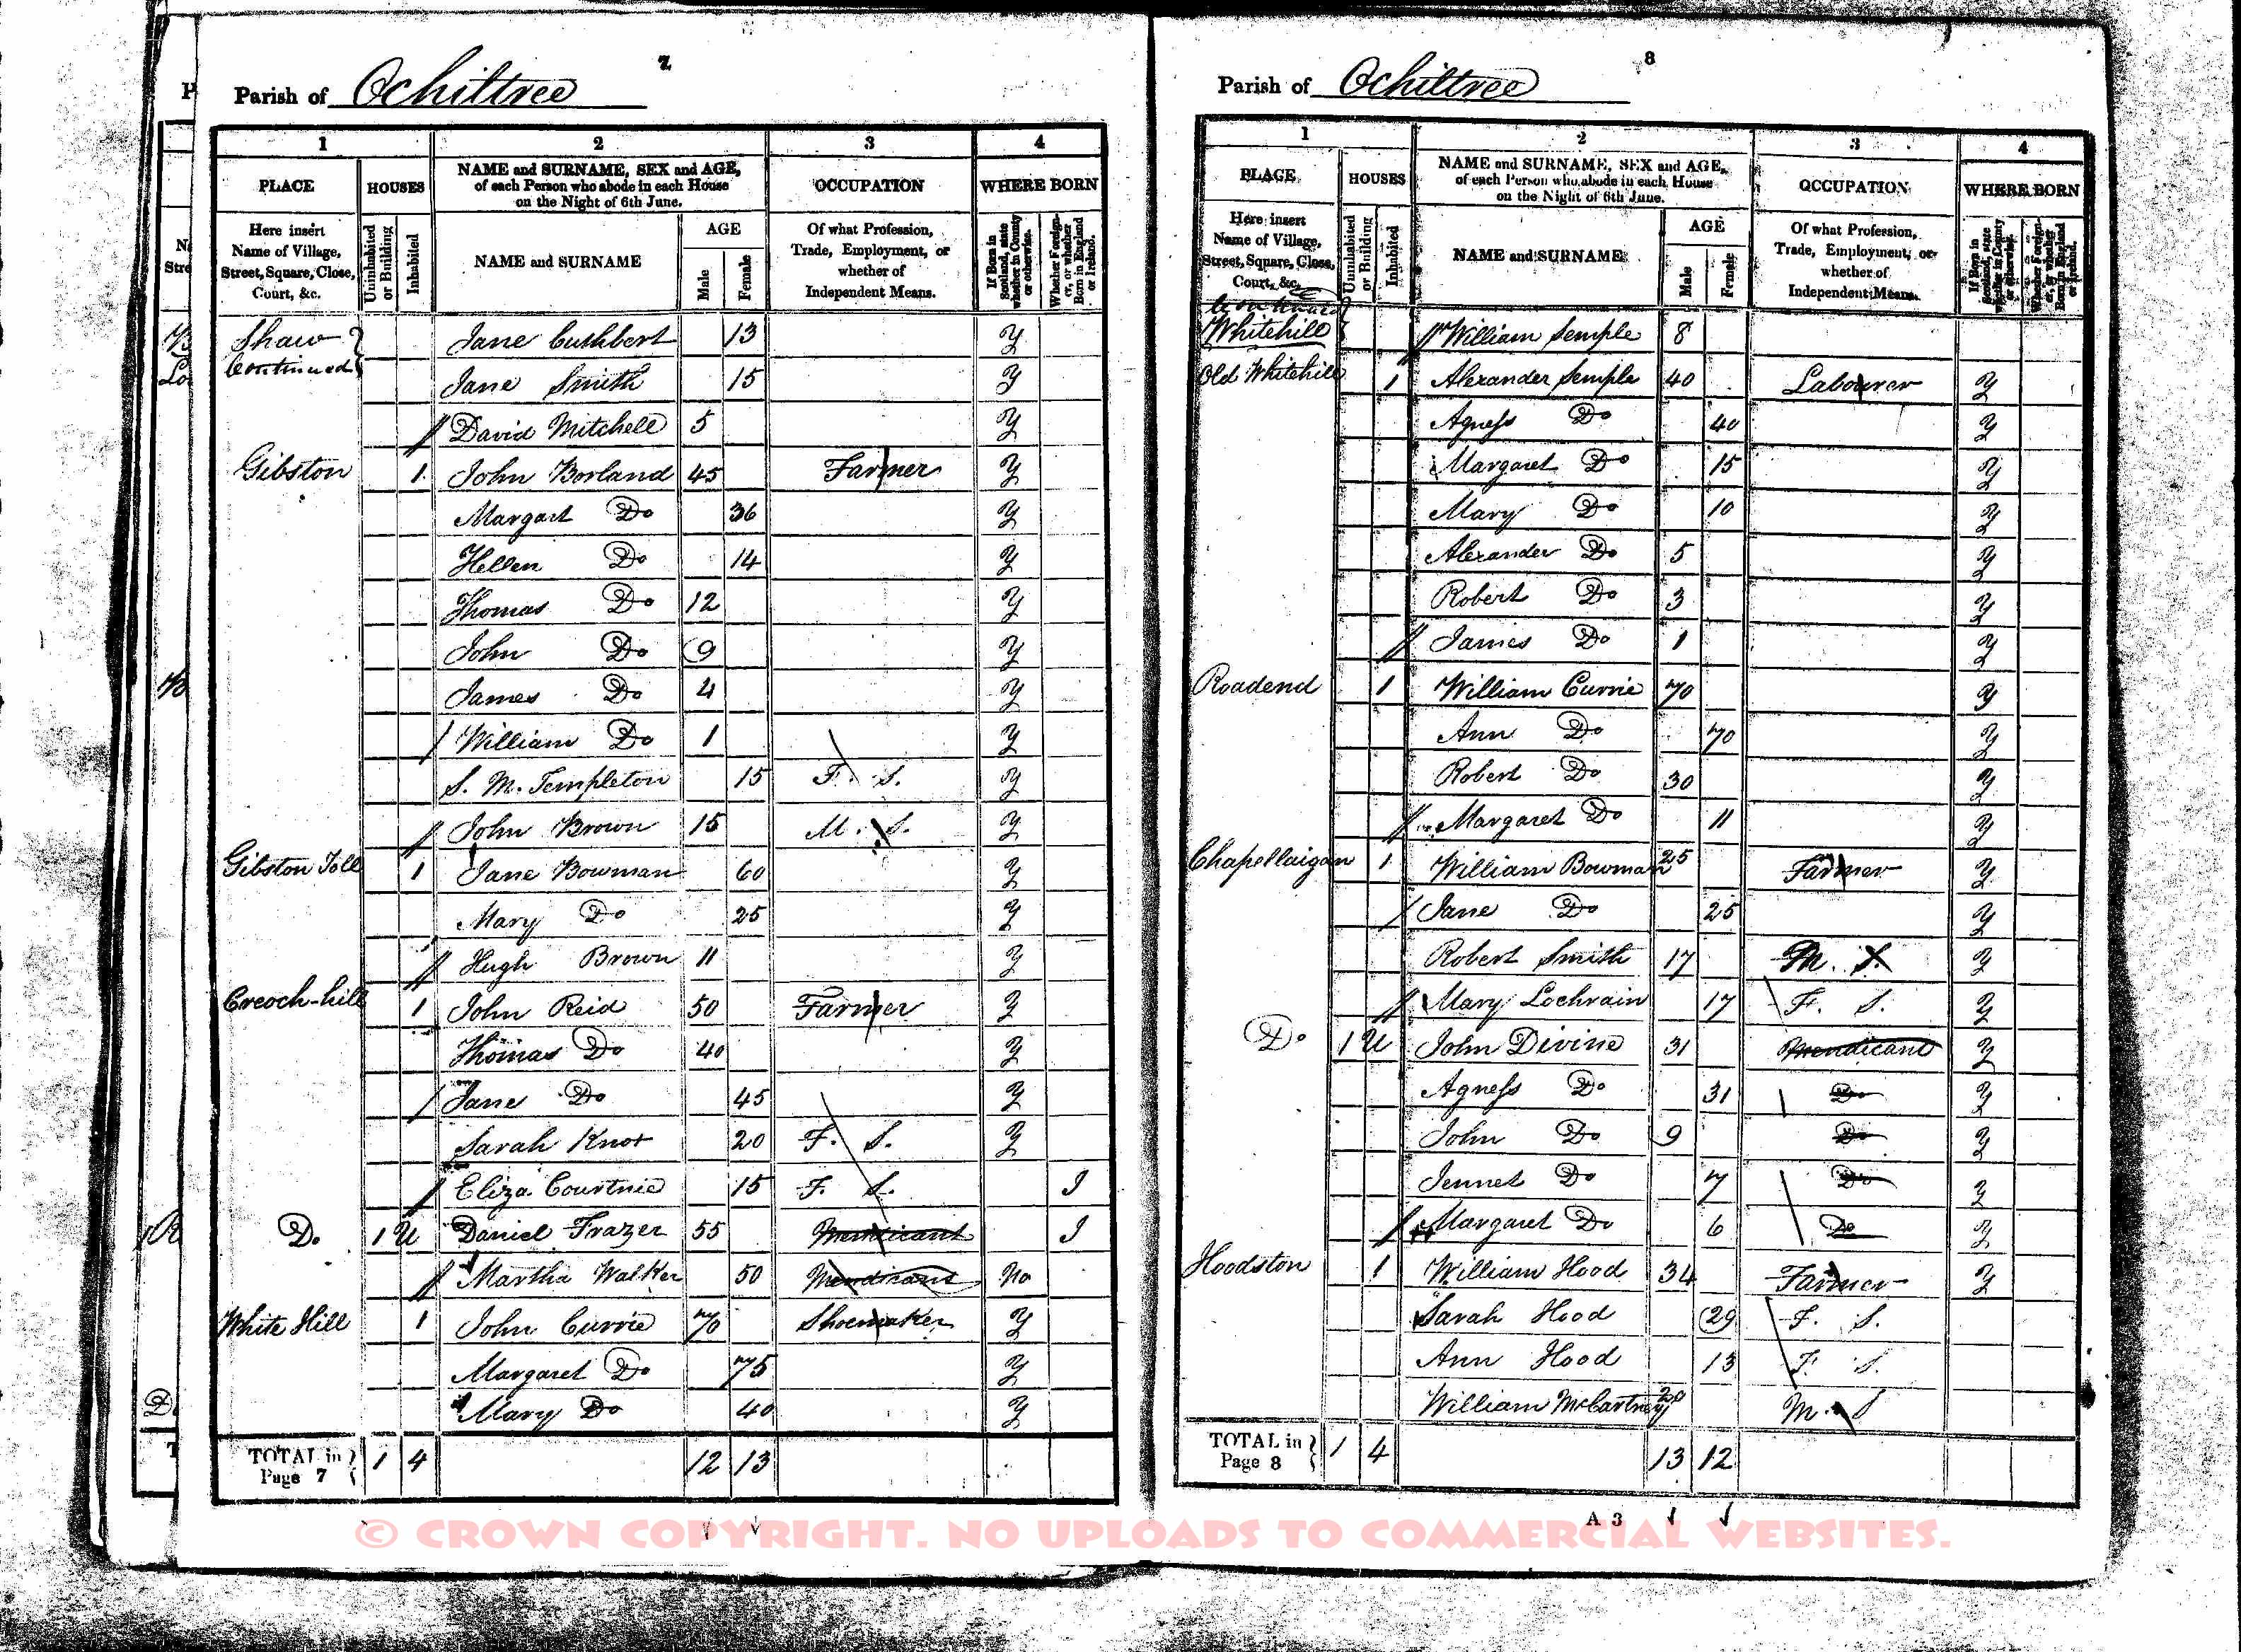 7
Parish of Ochiltree
1 2 3 4
PLACE HOUSES NAME and SURNAME, SEX and AGE, of each Person who abode in each House on the Night of 6th June. OCCUPATION WHERE BORN
Here insert Name of Village, Street, Square, Close, Court, &c. Uninhabited or Building Inhabited NAME and SURNAME AGE Male Female Of what Profession, Trade, Employment, or whether of Independent Means. If Born in Scotland, state whether in County or otherwise. Whether Foreigner, or whether Born in England or Ireland.
Shaw Jane Cuthbert 13 Y
Continued Jane Smith 15 Y
David Mitchell 5 Y
Gibston 1 John Borland 45 Farmer Y
Margart Do 36 Y
Hellen Do 14 Y
Thomas Do 12 Y
John Do 9 Y
James Do 4 Y
William Do 1 Y
S. M. Templeton 15 F. S. Y
John Brown 15 M. S. Y
Gibston Toll 1 Jane Bowman 60 Y
Mary Do 25 Y
Hugh Brown 11 Y
Creoch-hill 1 John Reid 50 Farmer Y
Thomas Do 40 Y
Jane Do 45 Y
Sarah Knox 20 F. S. Y
Eliza Courtnie 15 F. S. I
Do. 1 U Daniel Frazer 55 Mendicant I
Martha Walker 50 Mendicant No
White Hill 1 John Currie 70 Shoemaker Y
Margaret Do 75 Y
Mary Do 40 Y
TOTAL in Page 7 1 4 12 13
8
Parish of Ochiltree
1 2 3 4
PLACE HOUSES NAME and SURNAME, SEX and AGE, of each Person who abode in each House on the Night of 6th June. OCCUPATION WHERE BORN
Here insert Name of Village, Street, Square, Close, Court, &c. Uninhabited or Building Inhabited NAME and SURNAME AGE Male Female Of what Profession, Trade, Employment, or whether of Independent Means. If Born in Scotland, state whether in County or otherwise. Whether Foreigner, or whether Born in England or Ireland.
Continued
Whitehill William Semple 8
Old Whitehill 1 Alexander Semple 40 Labourer Y
Agness Do 40 Y
Margaret Do 15 Y
Mary Do 10 Y
Alexander Do 5 Y
Robert Do 3 Y
James Do 1 Y
Roadend 1 William Currie 70 Y
Ann Do 70 Y
Robert Do 30 Y
Margaret Do 11 Y
Chapellaigan 1 William Bowman 25 Farmer Y
Jane Do 25 Y
Robert Smith 17 M. S. Y
Mary Lochrain 17 F. S. Y
Do 1 U John Divine 31 Mendicant Y
Agness Do 31 Do Y
John Do 9 Do Y
Jennet Do 7 Do Y
Margaret Do 6 Do Y
Hoodston 1 William Hood 34 Farmer Y
Sarah Hood 29 F. S.
Ann Hood 13 F. S.
William McCartney 20 M. S
TOTAL in Page 8 1 4 13 12
A 3
© CROWN COPYRIGHT. NO UPLOADS TO COMMERCIAL WEBSITES.